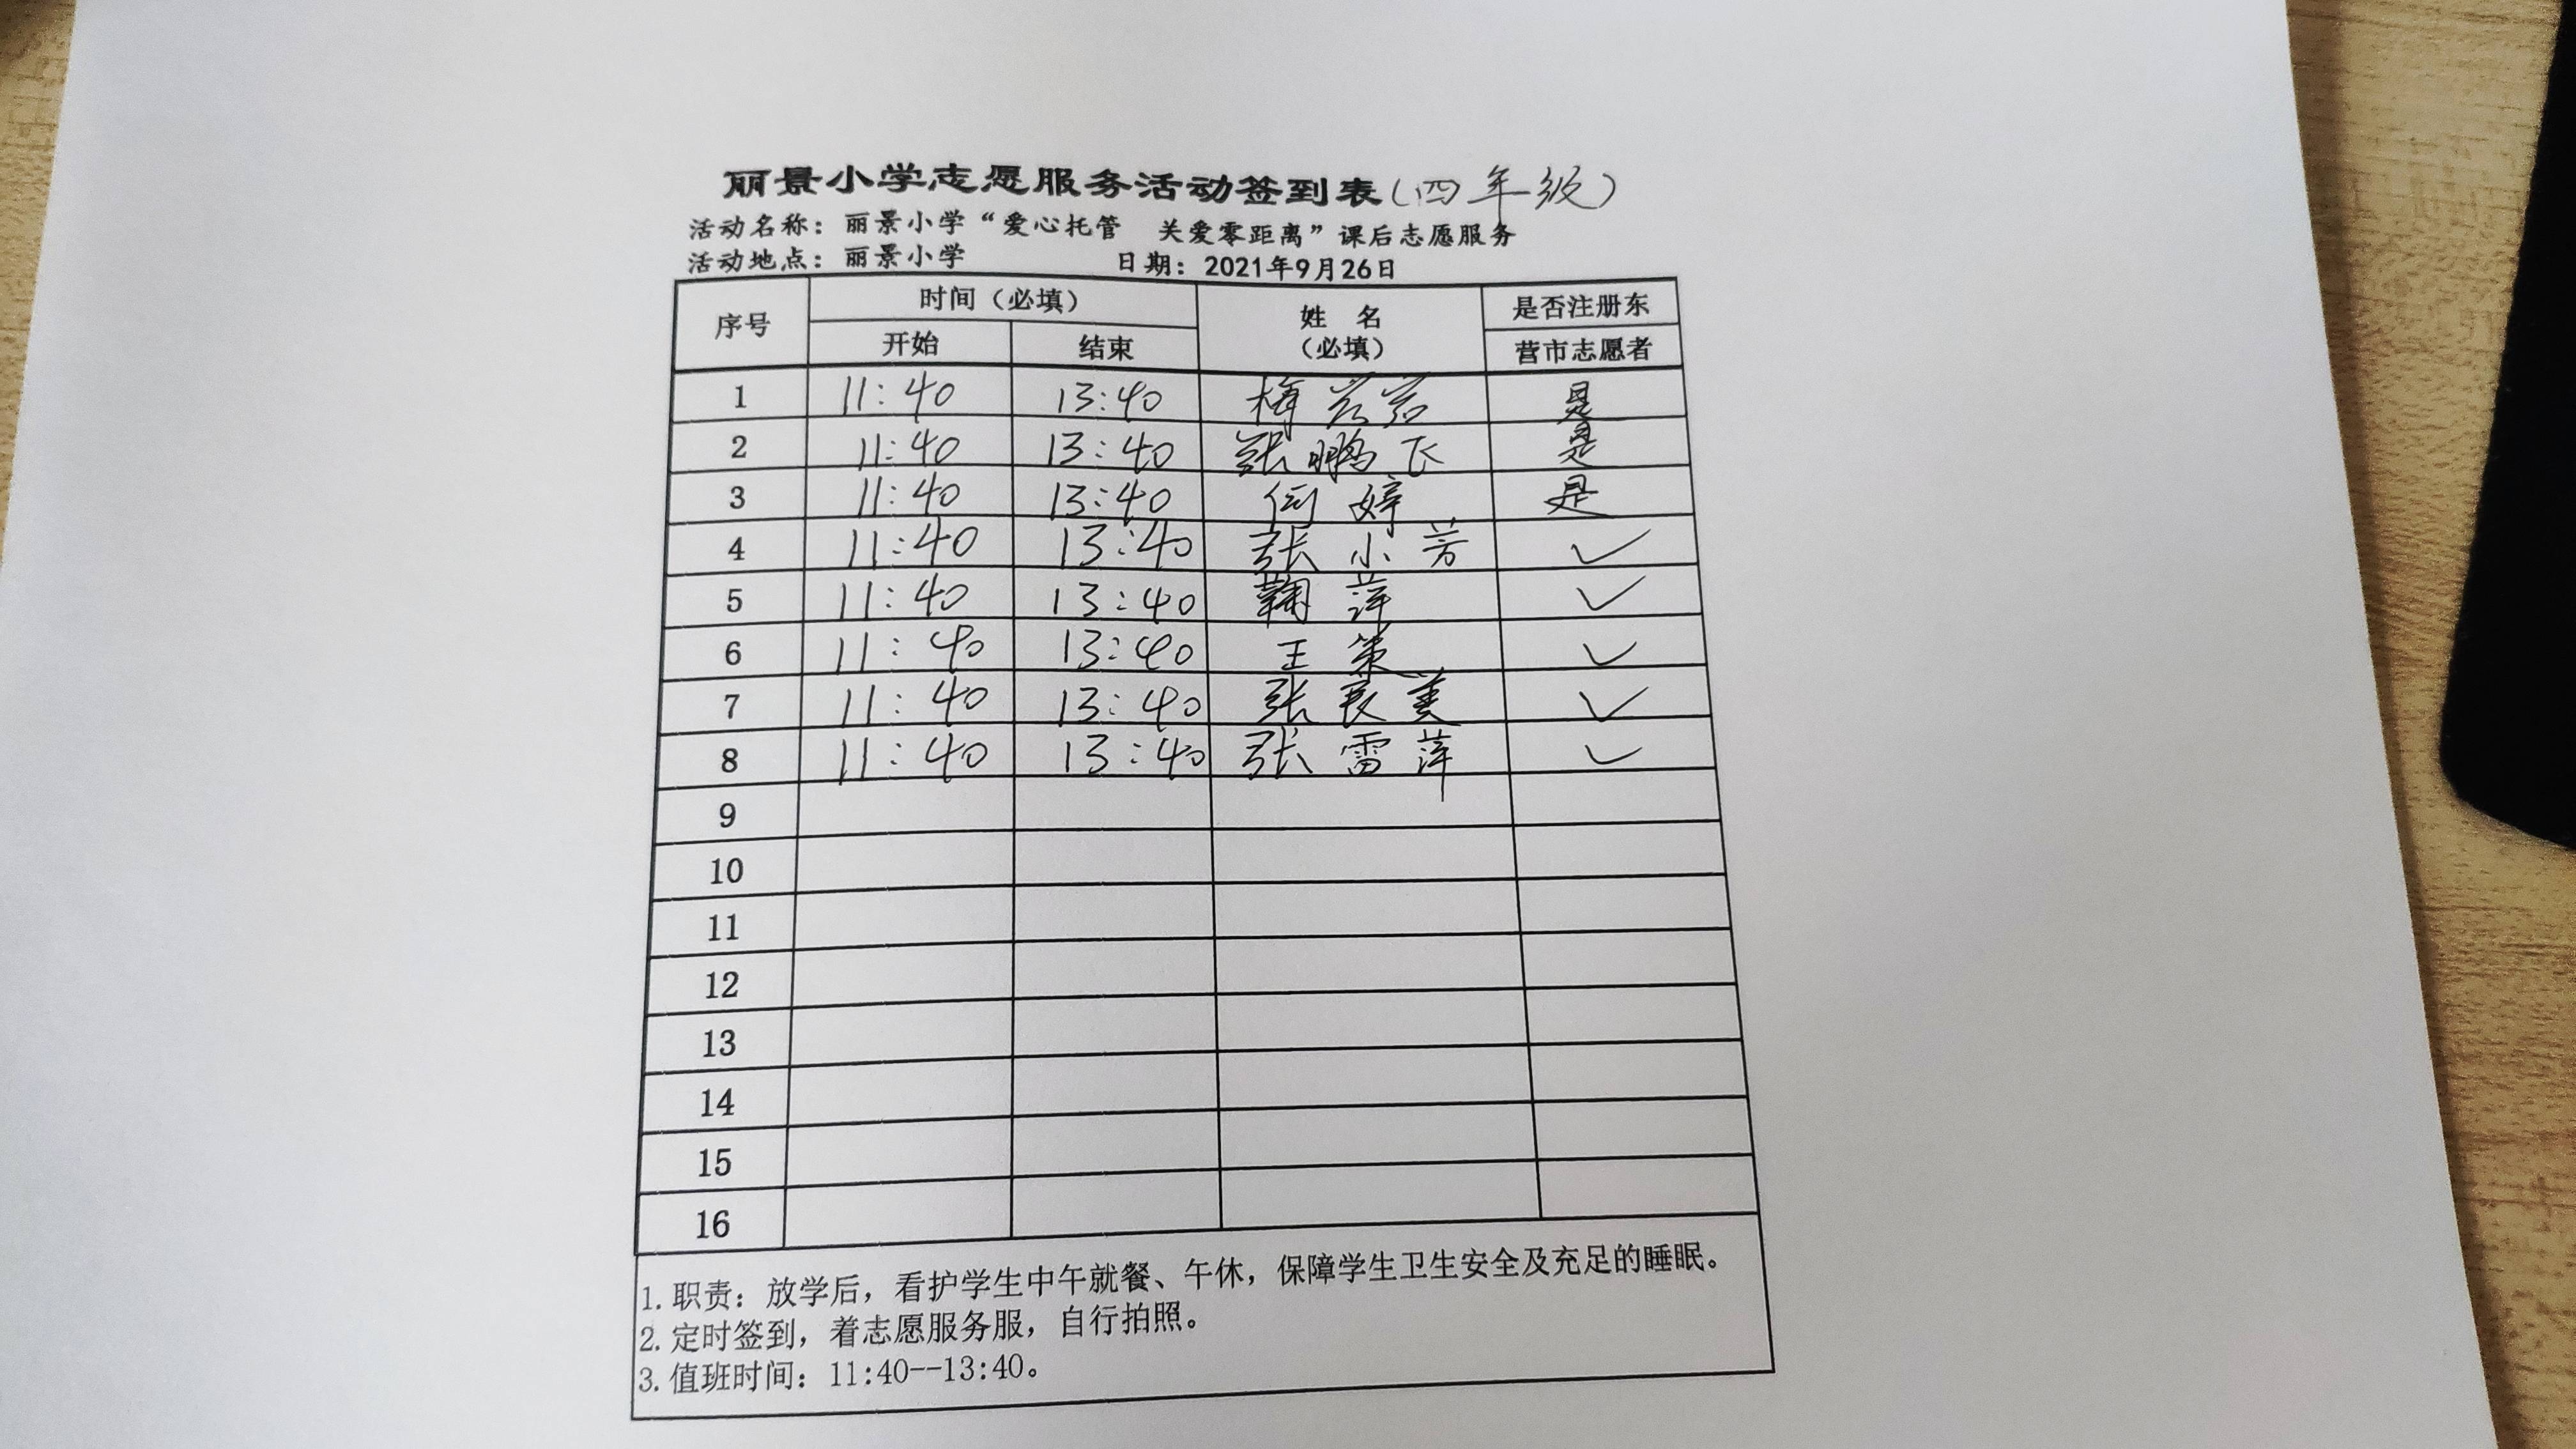 丽景小学志愿服务活动签到表(四年级)
活动名称：丽景小学“爱心托管 关爱零距离”课后志愿服务
活动地点：丽景小学 日期：2021年9月26日
序号 时间（必填） 姓 名 是否注册东
开始 结束 （必填） 营市志愿者
1 11:40 13:40 梅 是
2 11:40 13:40 张鹏飞 是
3 11:40 13:40 婷 是
4 11:40 13:40 张小芳 ✓
5 11:40 13:40 鞠萍 ✓
6 11:40 13:40 王策 ✓
7 11:40 13:40 张爱美 ✓
8 11:40 13:40 张雷萍 ✓
9
10
11
12
13
14
15
16
1.职责：放学后，看护学生中午就餐、午休，保障学生卫生安全及充足的睡眠。
2.定时签到，着志愿服务服，自行拍照。
3.值班时间：11:40--13:40。